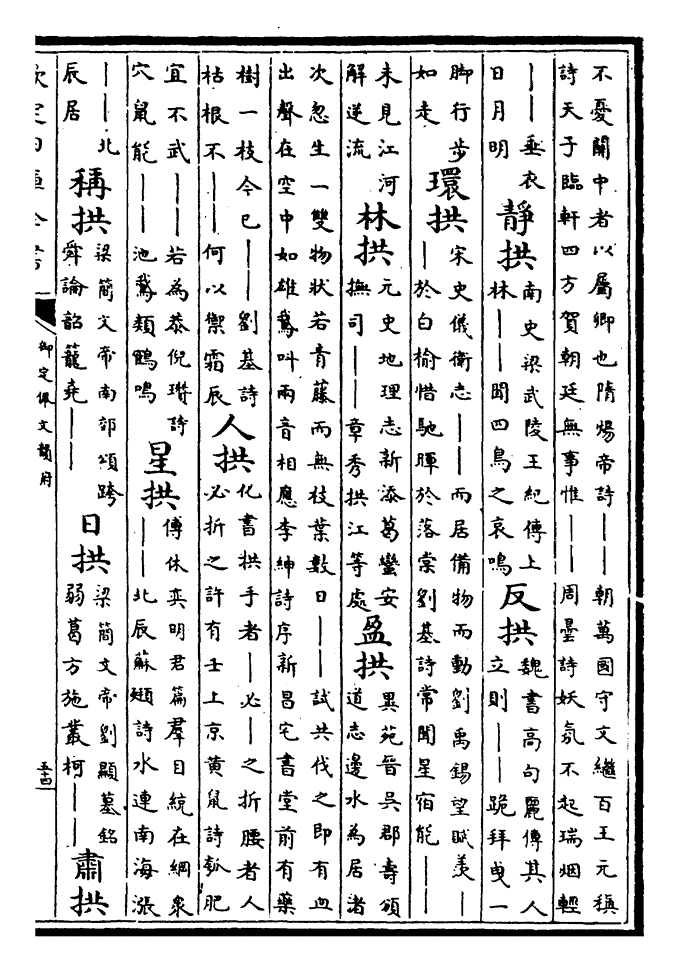 不憂關中者以屬卿也隋煬帝詩——朝萬國守文繼百王元稹
詩天子臨軒四方賀朝廷無事惟——周曇詩妖氛不起瑞烟輕
——垂衣
日月明
靜拱
南史梁武陵王紀傳上
林——聞四鳥之哀鳴
反拱
魏書高句麗傳其人
立則——跪拜曵一
脚行步
如走
環拱
宋史儀衛志——而居備物而動劉禹錫望賦羨—
—於白榆惜馳暉於落棠劉基詩常聞星宿能——
未見江河
解逆流
林拱
元史地理志新添葛蠻安
撫司——章秀拱江等處
盈拱
異苑晉吳郡壽頒
道志邊水為居渚
次忽生一雙物狀若青藤而無枝葉數日——試共伐之即有血
出聲在空中如雄鵞叫兩音相應李紳詩序新昌宅書堂前有藥
樹一枝今已——劉基詩
枯根不——何以禦霜辰
人拱
化書拱手者—必—之折腰者人
必折之許有壬上京黄鼠詩瓠肥
宜不武——若為恭倪瓚詩
穴鼠能——池鵞類鶴鳴
星拱
傅休奕明君篇羣目統在綱衆
——北辰蘇頲詩水連南海漲
——北
辰居
稱拱
梁簡文帝南郊頌跨
舜論韶籠堯——
日拱
梁簡文帝劉顯墓銘
弱葛方施叢柯——
肅拱
欽定四庫全書
御定佩文韻府
五十四